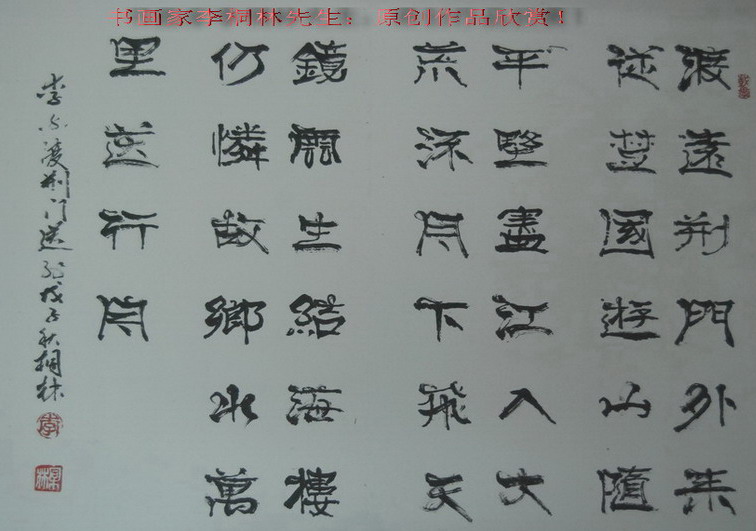 书画家李桐林先生：原创作品欣赏！
渡遠荆門外来
從楚國遊山隨
平野盡江入大
荒流月下飛天
鏡雲生結海樓
仍憐故鄉水萬
里送行舟
李白渡荆门送别戊子秋桐林